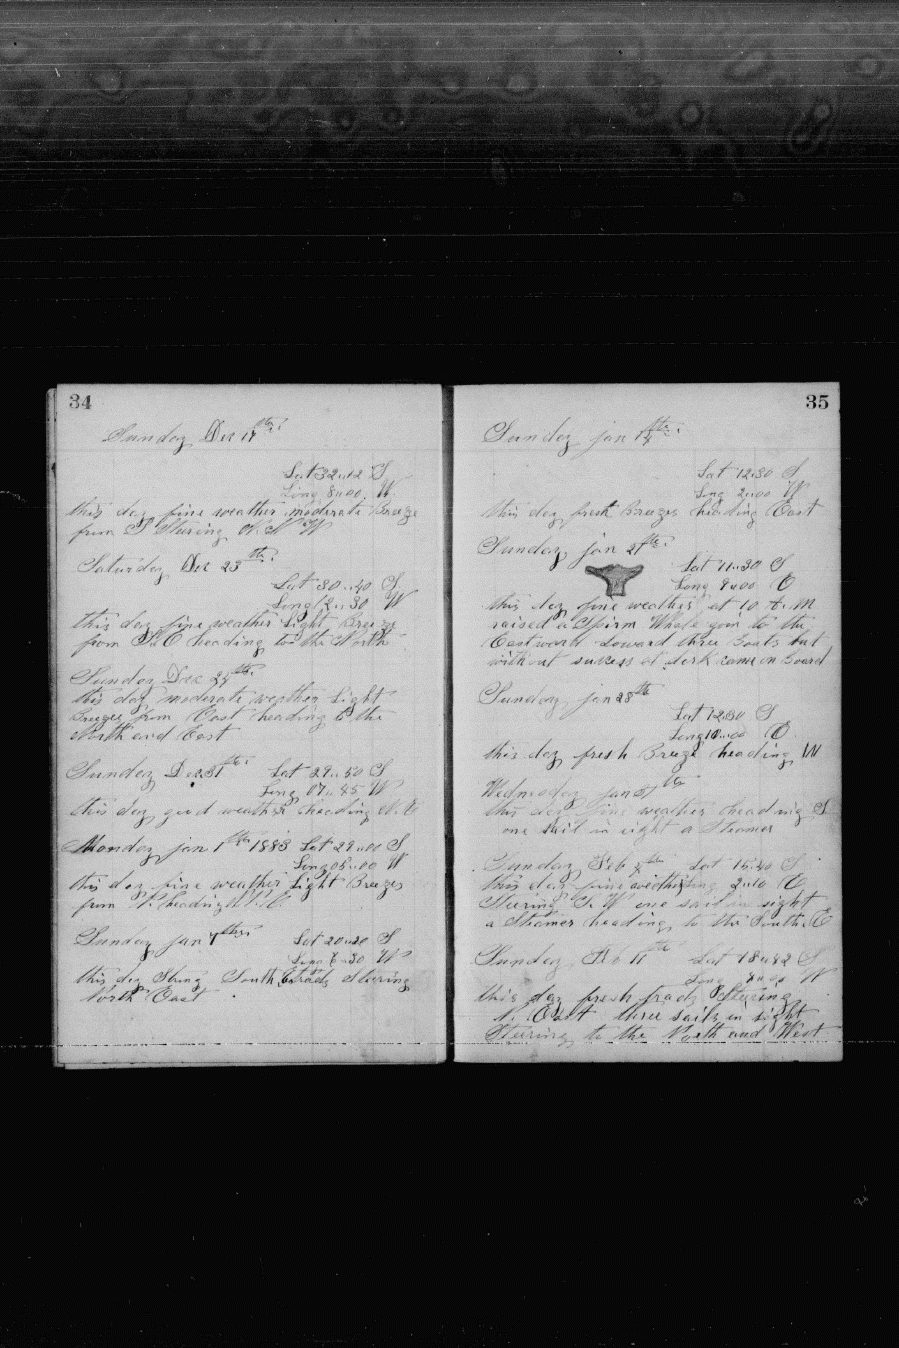 34
Sunday Dec 17th
Lat 32..12 S
Long 8..00 W
this day fine weather moderate Breeze
from S Steering N. N W
Saturday Dec 23th
Lat 30..40 S
Long 12..30 W
this day fine weather Light Breeze
from S.E heading to the North
Sunday Dec
this day moderate weather Light
Breezes from East heading to the
North and East
Sunday Dec 31th Lat 29..50 S
Long 07..45 W
this day good weather heading N.E
Monday jan 1th 1883 Lat 29..00 S
Long 05..00 W
this day fine weather Light Breezes
from N. heading
Sunday jan 7th Lat 20..20 S
Long 6..30 W
this day Strong South E trads Steering
North East
35
Sunday jan 14th
Lat 12..30 S
Long 2..00 W
this day fresh Breezes heading East
Sunday jan 21th
Lat 11..30 S
Long 9..00 E
this day fine weather at 10 A.M
raised a Spirm Whale goin to the
Eastward Loward three Boats but
without sucsess at derk came on Board
Sunday jan 28th
Lat 12..30 S
Long 10..00 E
this day fresh Breeze heading W
Wednesday jan 31th
this day fine weather heading S
one sail in sight a Steamer
Sunday Feb 4th Lat 15..40 S
this day fine weather Long 2..00 E
Steering S. W one sail in sight
a Steamer heading to the South. E
Sunday Feb 11th Lat 18..42 S
Long W
this day fresh trads Steering
N. East three sails in sight
Steering to the North and West